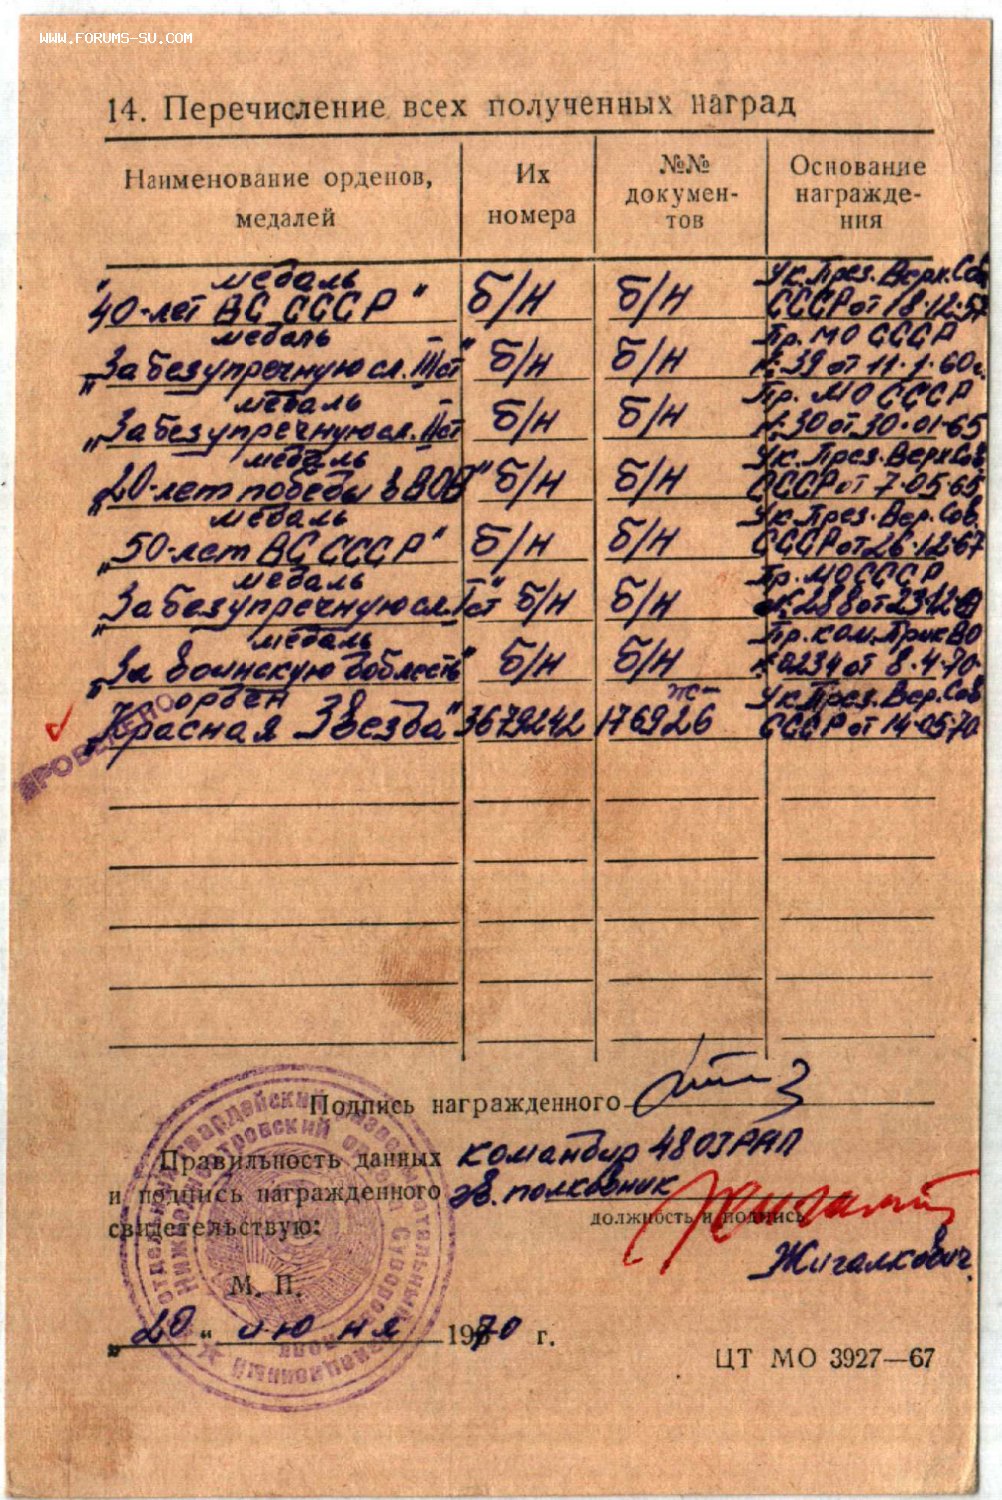 WWW.FORUMS-SU.COM
14. Перечисление всех полученных наград
Наименование орденов, медалей
Их номера
№№ докумен-тов
Основание награжде-ния
медаль Ук. През. Верх. Сов
"40-лет ВС СССР" б/н б/н СССР от 18.12.57
медаль Пр. МО СССР
"За безупречную сл. III ст" б/н б/н №39 от 11.1.60г.
медаль Пр. МО СССР
"За безупречную сл. II ст б/н б/н №30 от 30.01.65
медаль Ук. През. Верх. Сов.
"20-лет победы в ВОВ" б/н б/н СССР от 7.05.65
медаль Ук. През. Вер. Сов.
"50-лет ВС СССР" б/н б/н СССР от 26.12.67
медаль Пр. МО СССР
"За безупречную сл. I ст" б/н б/н №288 от
медаль Пр. ком. ПрикВО
"За воинскую доблесть" б/н б/н №0234 от 8.4.70
орден Ж- Ук. През. Вер. Сов
"Красная Звезда" 3679242 176926 СССР от 14.05.70
ПРОВЕРЕНО
Подпись награжденного
Правильность данных командир 48 ОГРАП
и подпись награжденного гв. полковник
свидетельствую: должность и подпись
Жигалкович
М. П.
„20" июня 1970 г.
ЦТ МО 3927—67
Нижнеднестровский ордена Суворова